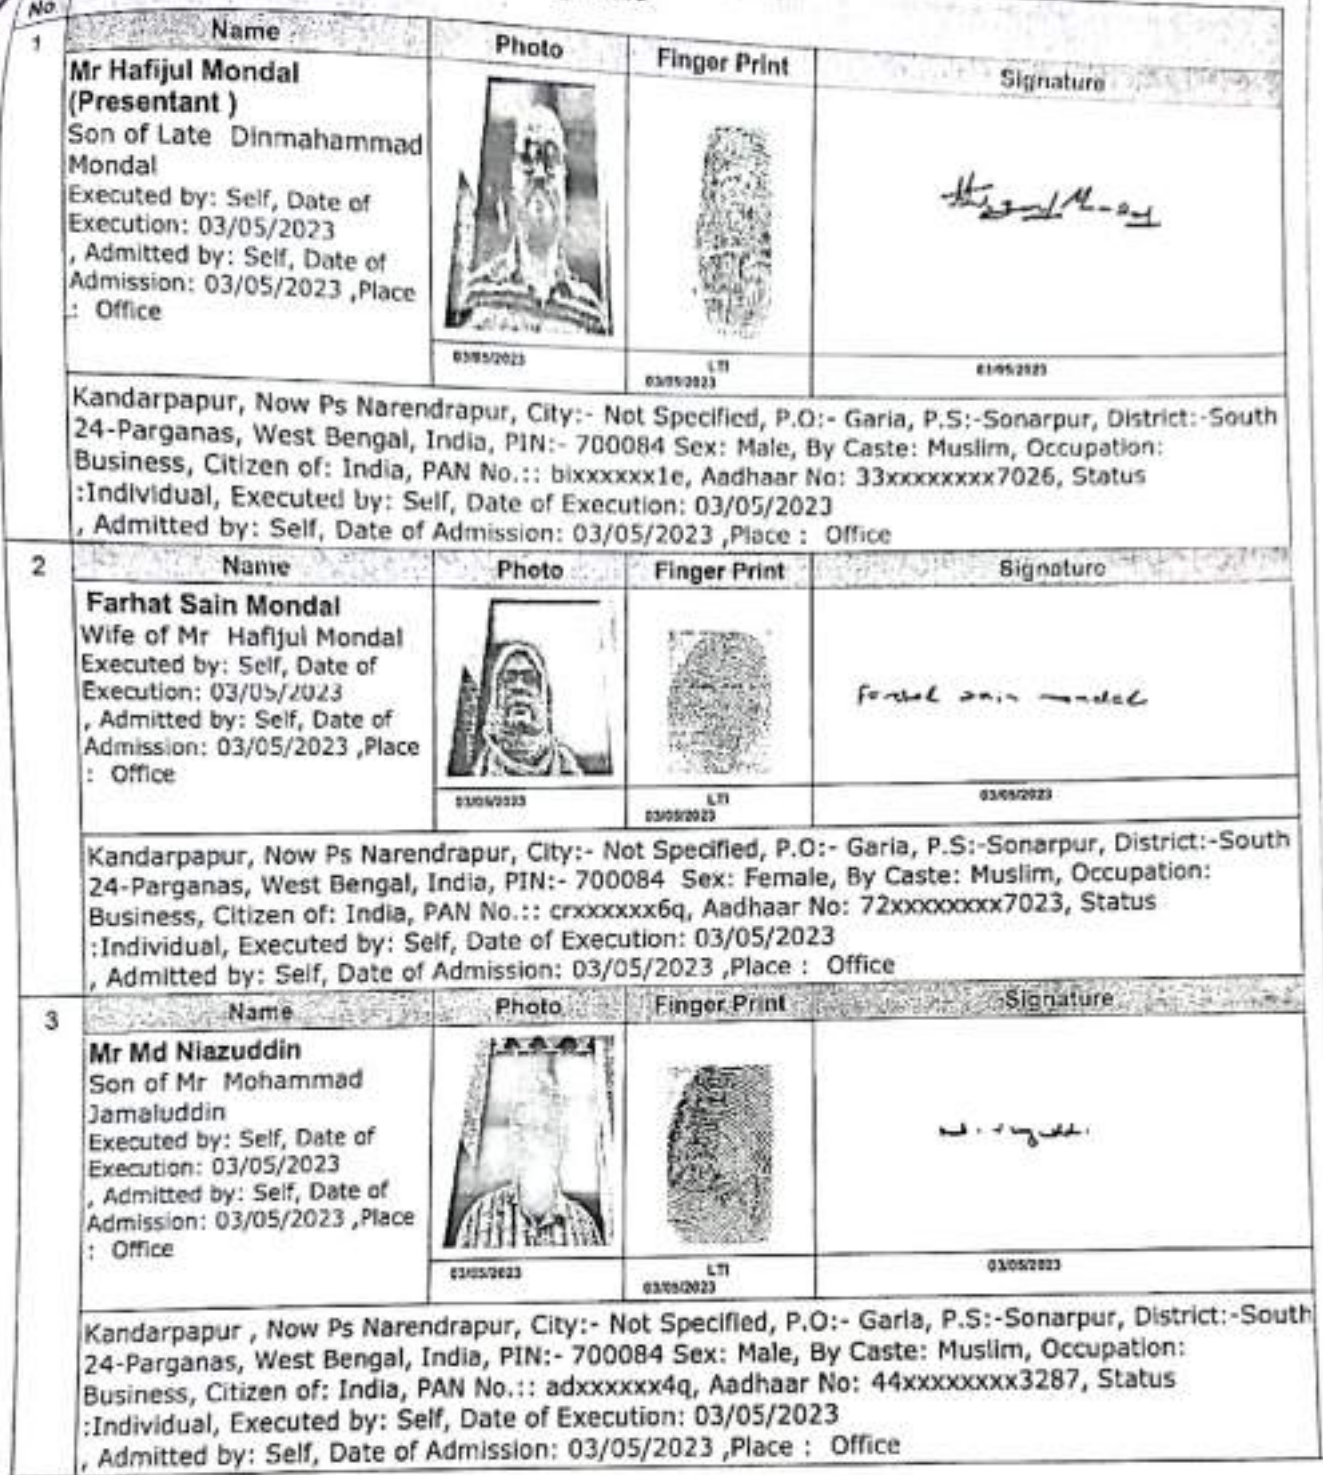 No
1
Name Photo Finger Print Signature
Mr Hafijul Mondal
(Presentant )
Son of Late Dinmahammad
Mondal
Executed by: Self, Date of
Execution: 03/05/2023
, Admitted by: Self, Date of
Admission: 03/05/2023 ,Place
: Office
03/05/2023 LTI
03/05/2023 03/05/2023
Kandarpapur, Now Ps Narendrapur, City:- Not Specified, P.O:- Garia, P.S:-Sonarpur, District:-South
24-Parganas, West Bengal, India, PIN:- 700084 Sex: Male, By Caste: Muslim, Occupation:
Business, Citizen of: India, PAN No.:: bixxxxxx1e, Aadhaar No: 33xxxxxxxx7026, Status
:Individual, Executed by: Self, Date of Execution: 03/05/2023
, Admitted by: Self, Date of Admission: 03/05/2023 ,Place : Office
2
Name Photo Finger Print Signature
Farhat Sain Mondal
Wife of Mr Hafijul Mondal
Executed by: Self, Date of
Execution: 03/05/2023
, Admitted by: Self, Date of
Admission: 03/05/2023 ,Place
: Office
Farhat Sain Mondal
03/05/2023 LTI
03/05/2023 03/05/2023
Kandarpapur, Now Ps Narendrapur, City:- Not Specified, P.O:- Garia, P.S:-Sonarpur, District:-South
24-Parganas, West Bengal, India, PIN:- 700084 Sex: Female, By Caste: Muslim, Occupation:
Business, Citizen of: India, PAN No.:: crxxxxxx6q, Aadhaar No: 72xxxxxxxx7023, Status
:Individual, Executed by: Self, Date of Execution: 03/05/2023
, Admitted by: Self, Date of Admission: 03/05/2023 ,Place : Office
3
Name Photo Finger Print Signature
Mr Md Niazuddin
Son of Mr Mohammad
Jamaluddin
Executed by: Self, Date of
Execution: 03/05/2023
, Admitted by: Self, Date of
Admission: 03/05/2023 ,Place
: Office
03/05/2023 LTI
03/05/2023 03/05/2023
Kandarpapur , Now Ps Narendrapur, City:- Not Specified, P.O:- Garia, P.S:-Sonarpur, District:-South
24-Parganas, West Bengal, India, PIN:- 700084 Sex: Male, By Caste: Muslim, Occupation:
Business, Citizen of: India, PAN No.:: adxxxxxx4q, Aadhaar No: 44xxxxxxxx3287, Status
:Individual, Executed by: Self, Date of Execution: 03/05/2023
, Admitted by: Self, Date of Admission: 03/05/2023 ,Place : Office